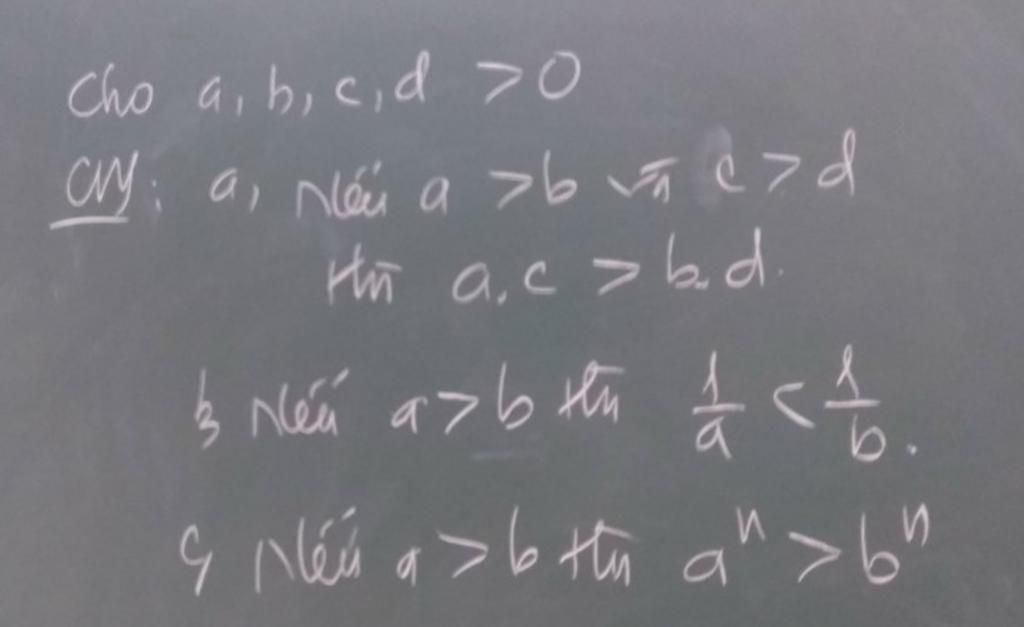 Cho a, b, c, d > 0
CM: a, Nếu a > b và c > d
thì a.c > b.d.
b, Nếu a > b thì 1/a < 1/b.
c, Nếu a > b thì aⁿ > bⁿ